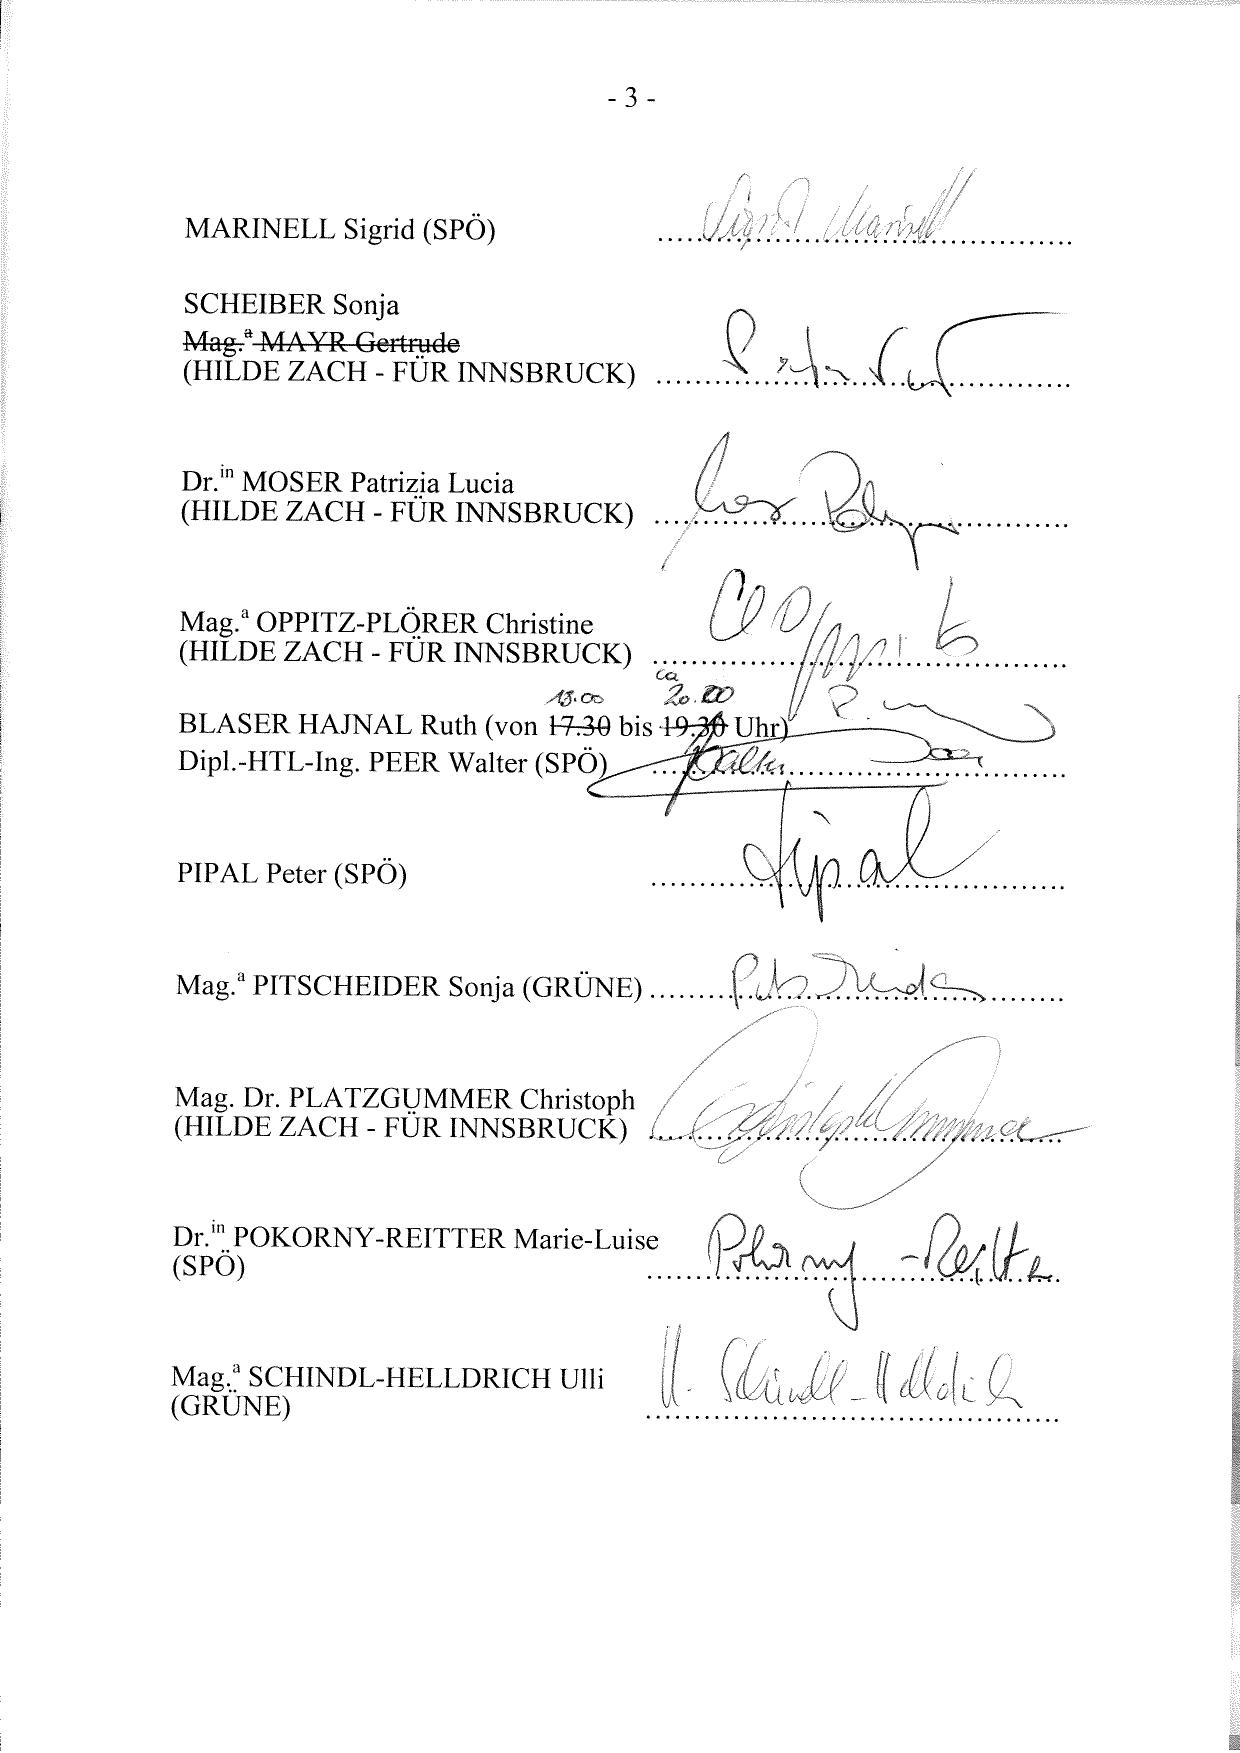 - 3 -
MARINELL Sigrid (SPÖ) Sigrid Marinell
SCHEIBER Sonja
Mag.ª MAYR Gertrude
(HILDE ZACH - FÜR INNSBRUCK)
Dr.in MOSER Patrizia Lucia
(HILDE ZACH - FÜR INNSBRUCK)
Mag.ª OPPITZ-PLÖRER Christine
(HILDE ZACH - FÜR INNSBRUCK)
ca
20.00
BLASER HAJNAL Ruth (von 17.30 bis 19.30 Uhr)
Dipl.-HTL-Ing. PEER Walter (SPÖ) Walter
PIPAL Peter (SPÖ) Pipal
Mag.ª PITSCHEIDER Sonja (GRÜNE) Pitscheider
Mag. Dr. PLATZGUMMER Christoph
(HILDE ZACH - FÜR INNSBRUCK) Christoph
Dr.in POKORNY-REITTER Marie-Luise
(SPÖ) Pokorny-Reitter
Mag.ª SCHINDL-HELLDRICH Ulli U. Schindl-Helldrich
(GRÜNE)